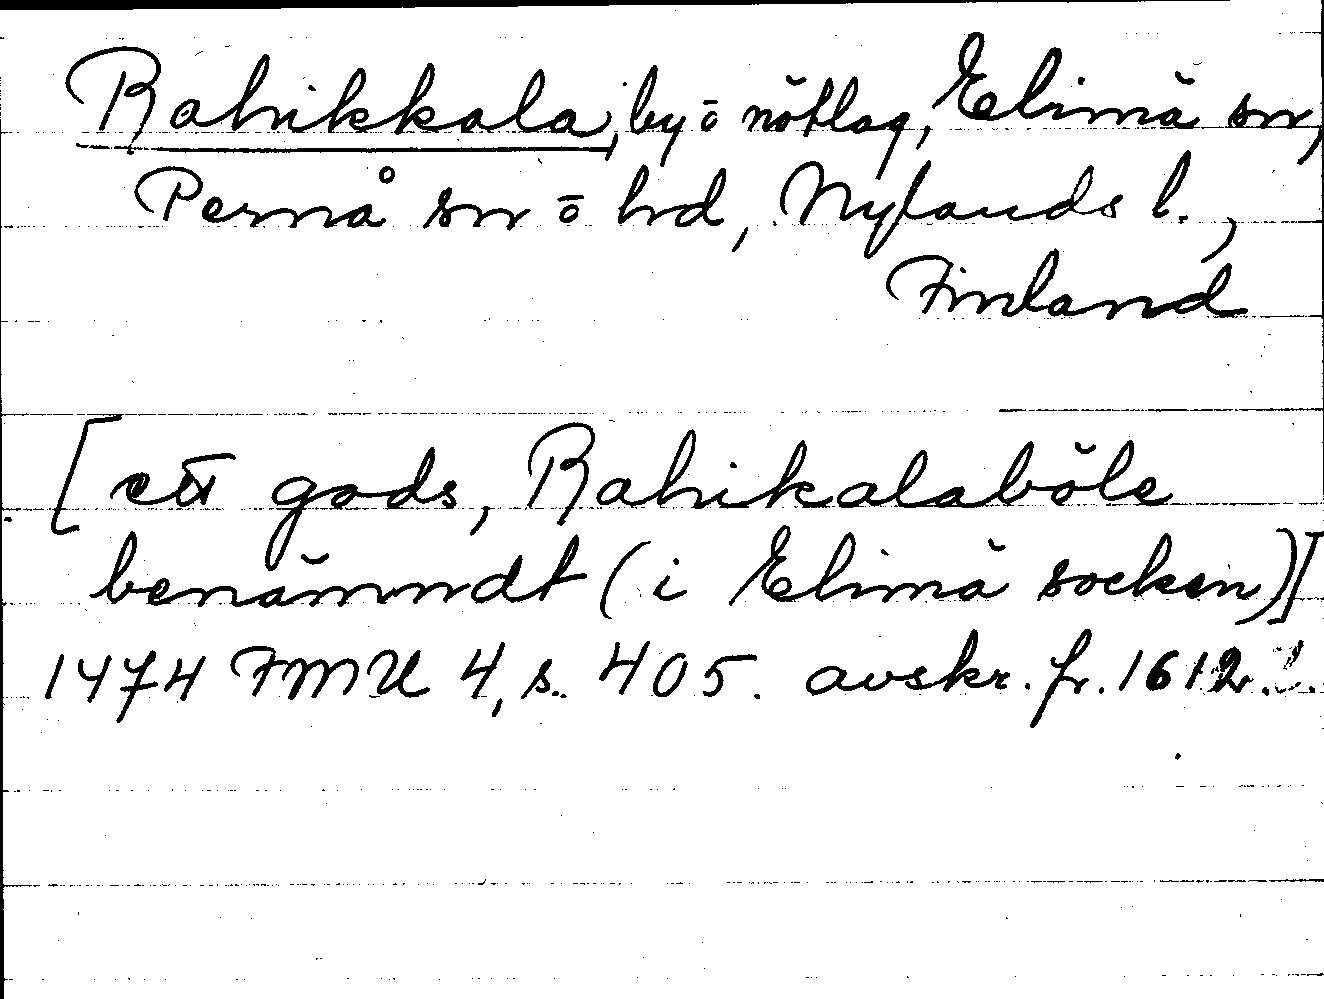 Rahikkala, by o nötlag, Elimä sn,
Pernå sn o hd, Nylands l.,
Finland
[ett gods, Rahikalaböle
benämndt (i Elimä socken)]
1474 FMU 4, s. 405. avskr. fr. 1612.